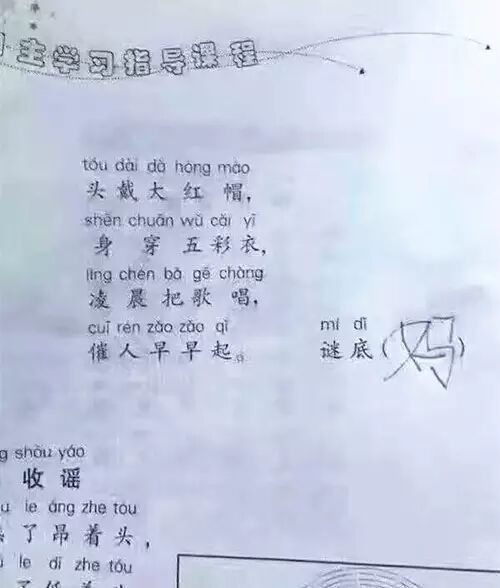 主学习指导课程
tóu dài dà hóng mào
头戴大红帽,
shēn chuān wǔ cǎi yī
身穿五彩衣,
líng chén bǎ gē chàng
凌晨把歌唱,
cuī rén zǎo zǎo qǐ mí dǐ
催人早早起。 谜底(妈)
shōu yáo
收谣
le áng zhe tóu
了昂着头,
le dī zhe tóu